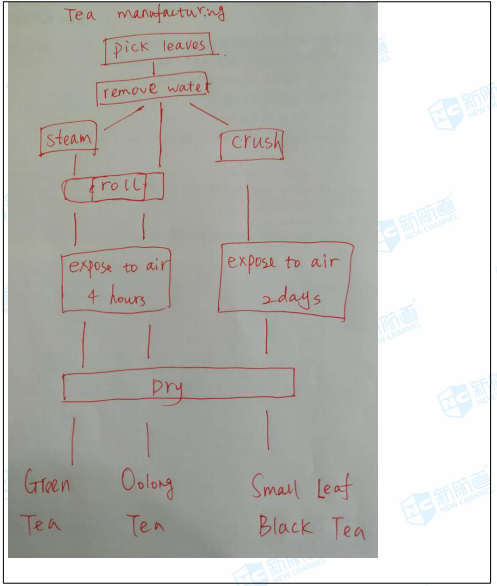 Tea manufacturing
pick leaves
remove water
steam
crush
roll
expose to air
4 hours
expose to air
2days
Dry
Green
Tea
Oolong
Tea
Small Leaf
Black Tea
新航道
NEW CHANNEL
新航道
NEW CHANNEL
新航道
NEW CHANNEL